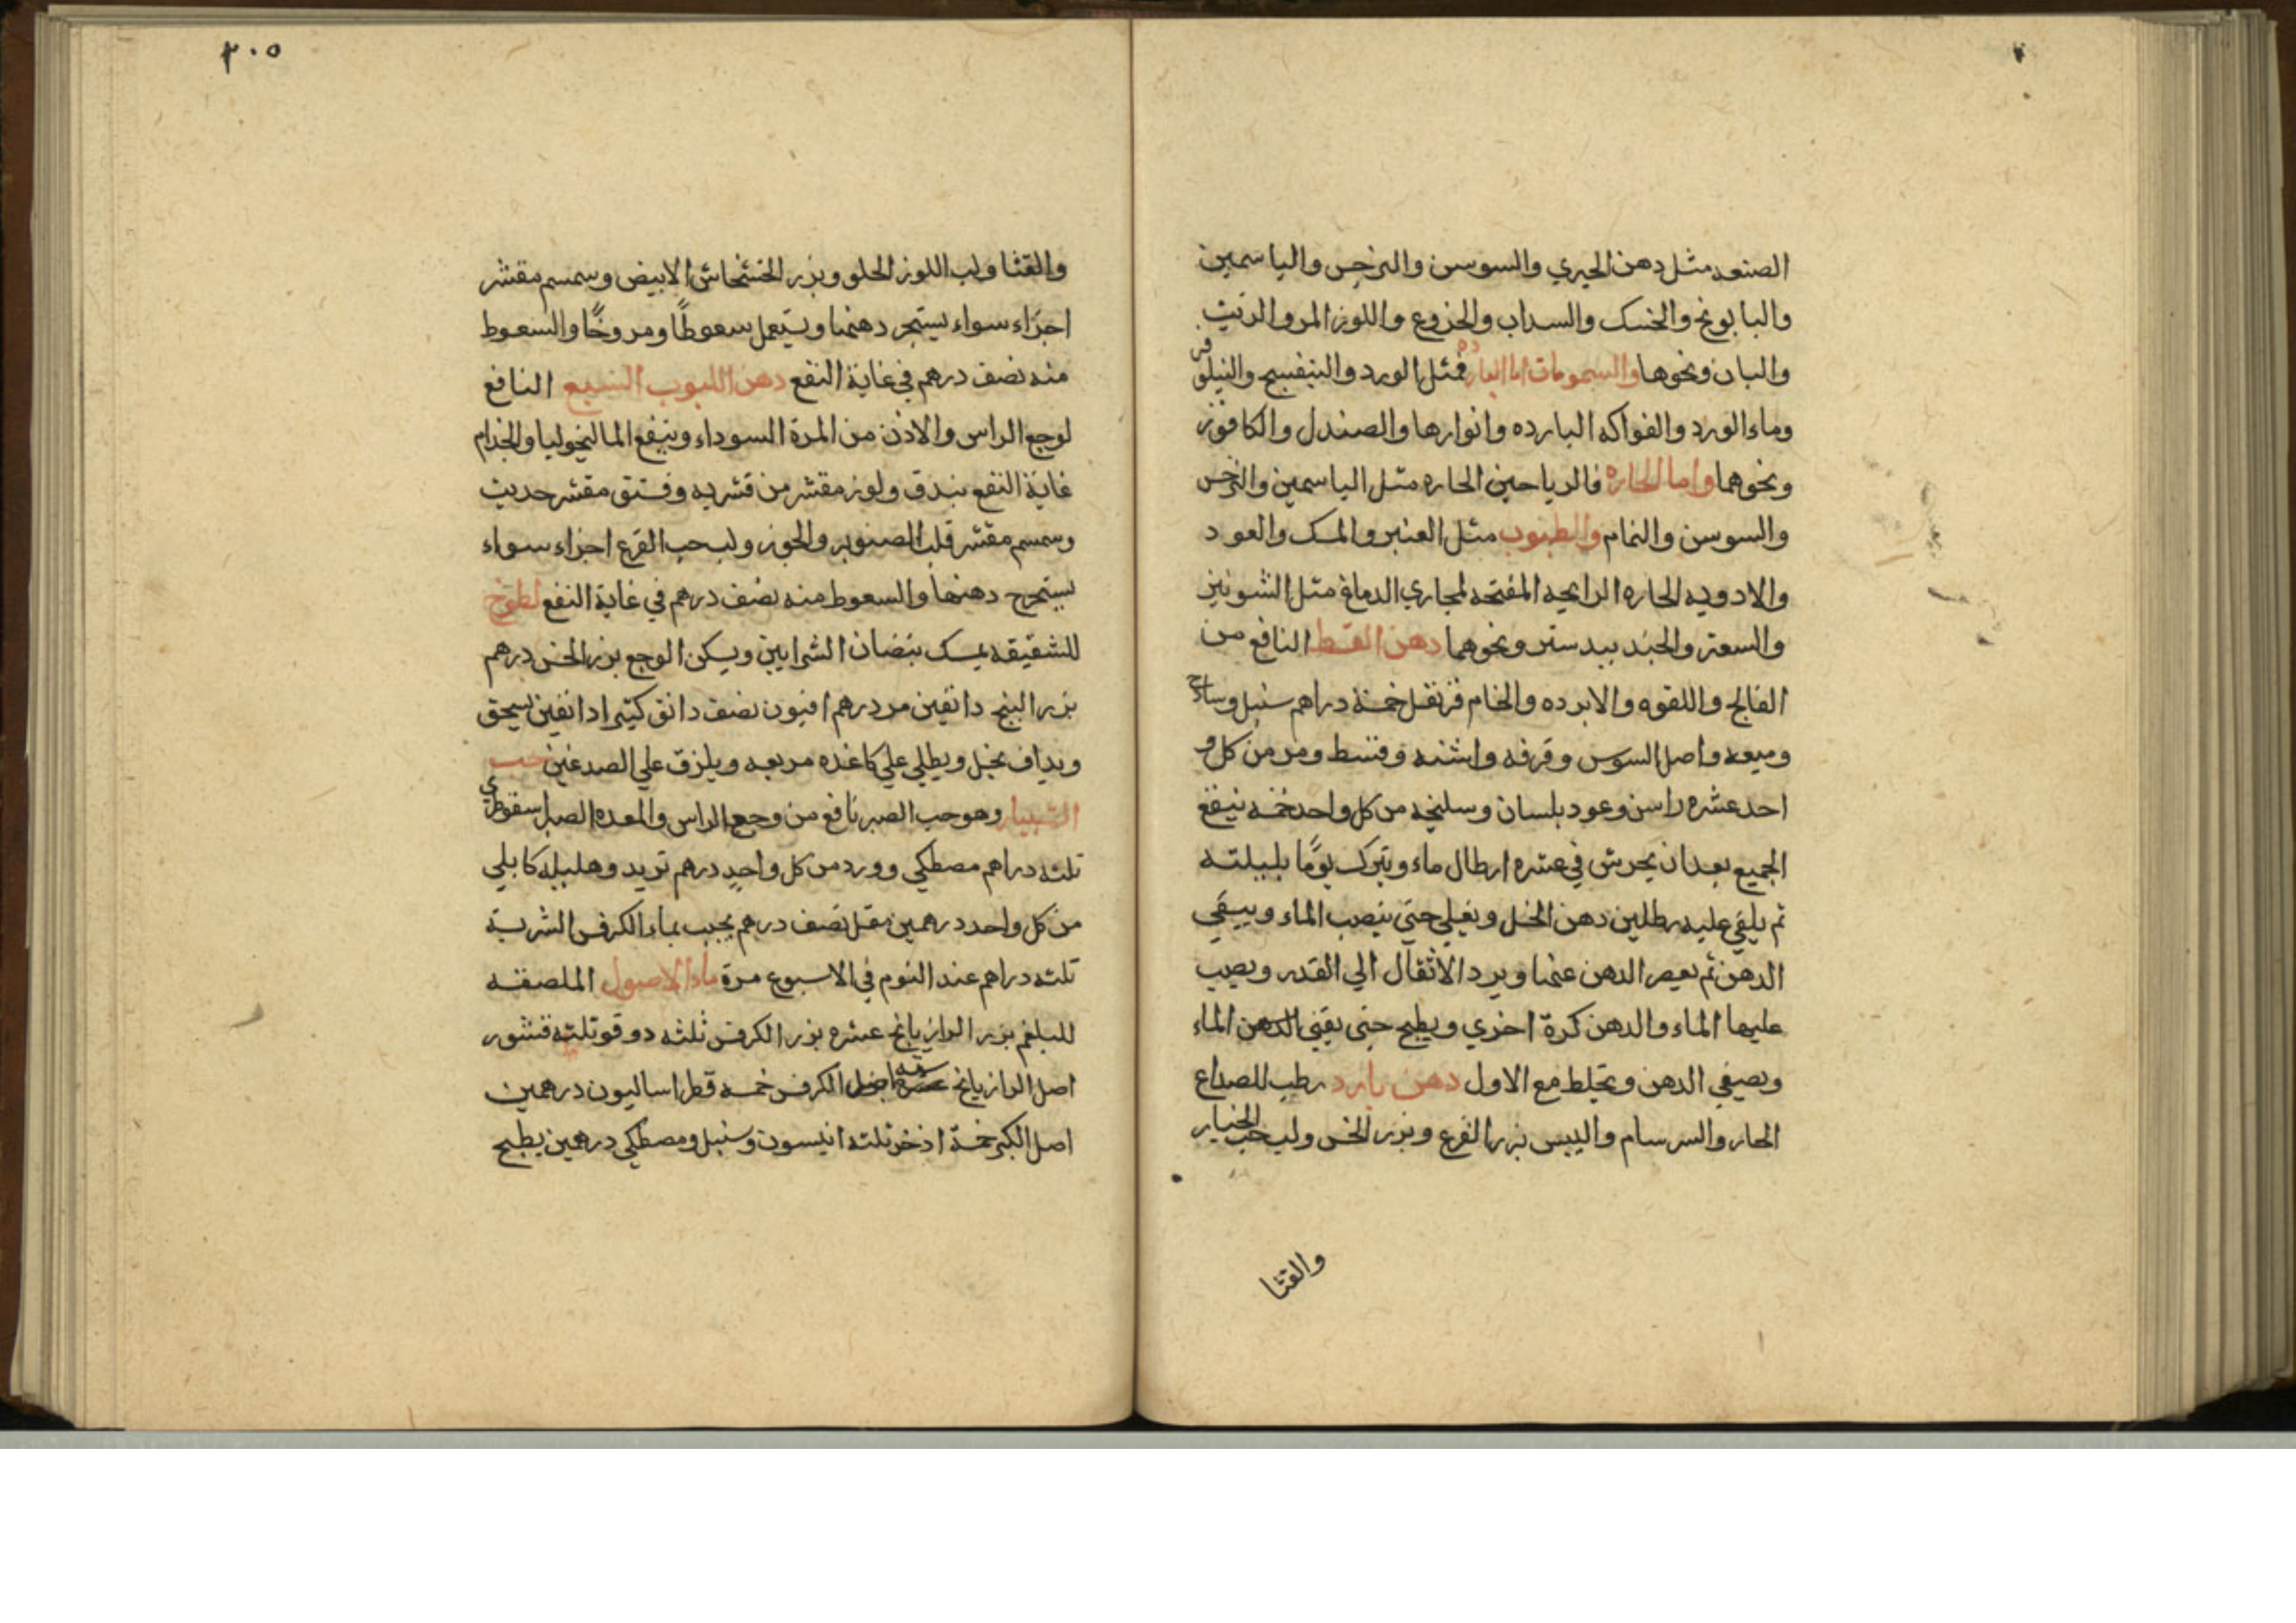 الصنعه مثل دهن الخيري والسوسن والنرجس والياسمين
والبابونج والخسك والسداب والخزوع واللوز المر والزيت
والبان ونحوها والشمومات اما البارده فمثل الورد والبنفسج والنيلوفر
وماء الورد والفواكه البارده وانوارها والصندل والكافور
ونحوهما واما الحاره فالرياحين الحاره مثل الياسمين والنرجس
والسوسن والنمام والطيوب مثل العنبر والمسك والعود
والادويه الحاره الرايحه المفتحه لمجاري الدماغ مثل الشونيز
والسعتر والجندبيدستر ونحوهما دهن القسط النافع من
الفالج واللقوه والابرده والخام قرنفل خمسة دراهم سنبل وسادج
وميعه واصل السوس وقرفه واشنه وقسط ومر من كل و
احد عشره راسن وعود بلسان وسليخه من كل واحد خمسه ينقع
الجميع بعد ان يجرش في عشره ارطال ماء ويترك يومًا بليلته
ثم يلقي عليه رطلين دهن الخل ويغلي حتي ينصب الماء ويبقي
الدهن ثم يعصر الدهن عنها ويرد الاثقال الي القدر ويصب
عليها الماء والدهن كرة اخري ويطبخ حتى يفني الدهن الماء
ويصفي الدهن ويخلط مع الاول دهن بارد رطب للصداع
الحار والسرسام واليبس بزر القرع وبزر الخس ولب حب الخيار
والقثا
٢٠٥
والقثا ولب اللوز الحلو وبزر الخشخاش الابيض وسمسم مقشر
اجزاء سواء يستخرج دهنها ويستعمل سعوطًا ومروخًا والسعوط
منه نصف درهم في غاية النفع دهن اللبوب السبع النافع
لوجع الراس والاذن من المرة السوداء وينفع الماليخوليا والجذام
غاية النفع بندق ولوز مقشر من قشريه وفستق مقشر حديث
وسمسم مقشر قلب الصنوبر والجوز ولب حب القرع اجزاء سواء
يستخرج دهنها والسعوط منه نصف درهم في غاية النفع لطوخ
للشقيقه يمسك نبضان الشرايين ويسكن الوجع بزر الخس درهم
بزر البنج دانقين مر درهم افيون نصف دانق كتيرا دانقين يسحق
ويداف بخل ويطلي علي كاغده مربعه ويلزق علي الصدغين حب
الشبيار وهو حب الصبر نافع من وجع الراس والمعده الصبر اسقوطري
ثلثه دراهم مصطكي وورد من كل واحدٍ درهم تربد وهليله كابلي
من كل واحد درهمين مقل نصف درهم يحبب بماء الكرفس الشربة
ثلثه دراهم عند النوم في الاسبوع مرة ماء الاصول الملصفه
للبلغم بزر الرازيانج عشره بزر الكرفس ثلثه دوقو ثلثه قشور
اصل الرازيانج اصل الكرفس خمسه قطراساليون درهمين
اصل الكبر خمسة اذخر ثلثه انيسون وسنبل ومصطكي درهمين يطبخ